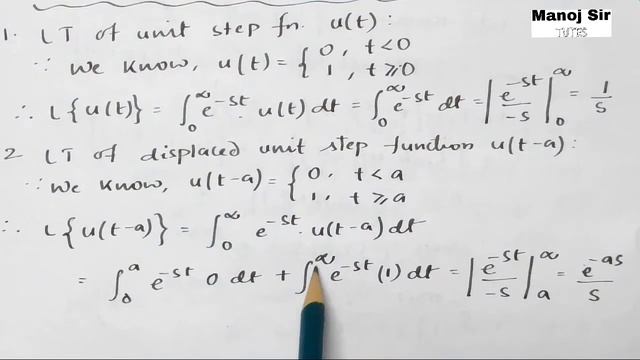 Manoj Sir
TUTES
1. LT of unit step fn. u(t):
∵ We know, u(t) = { 0, t<0
1, t⩾0
∴ L{u(t)} = ∫₀^∞ e^-st . u(t) dt = ∫₀^∞ e^-st dt = |e^-st/-s|₀^∞ = 1/s
2 LT of displaced unit step function u(t-a):
∵ We know, u(t-a) = { 0, t<a
1, t⩾a
∴ L{u(t-a)} = ∫₀^∞ e^-st . u(t-a) dt
= ∫₀^a e^-st 0 dt + ∫^∞ e^-st (1) dt = |e^-st/-s|ₐ^∞ = e^-as/s